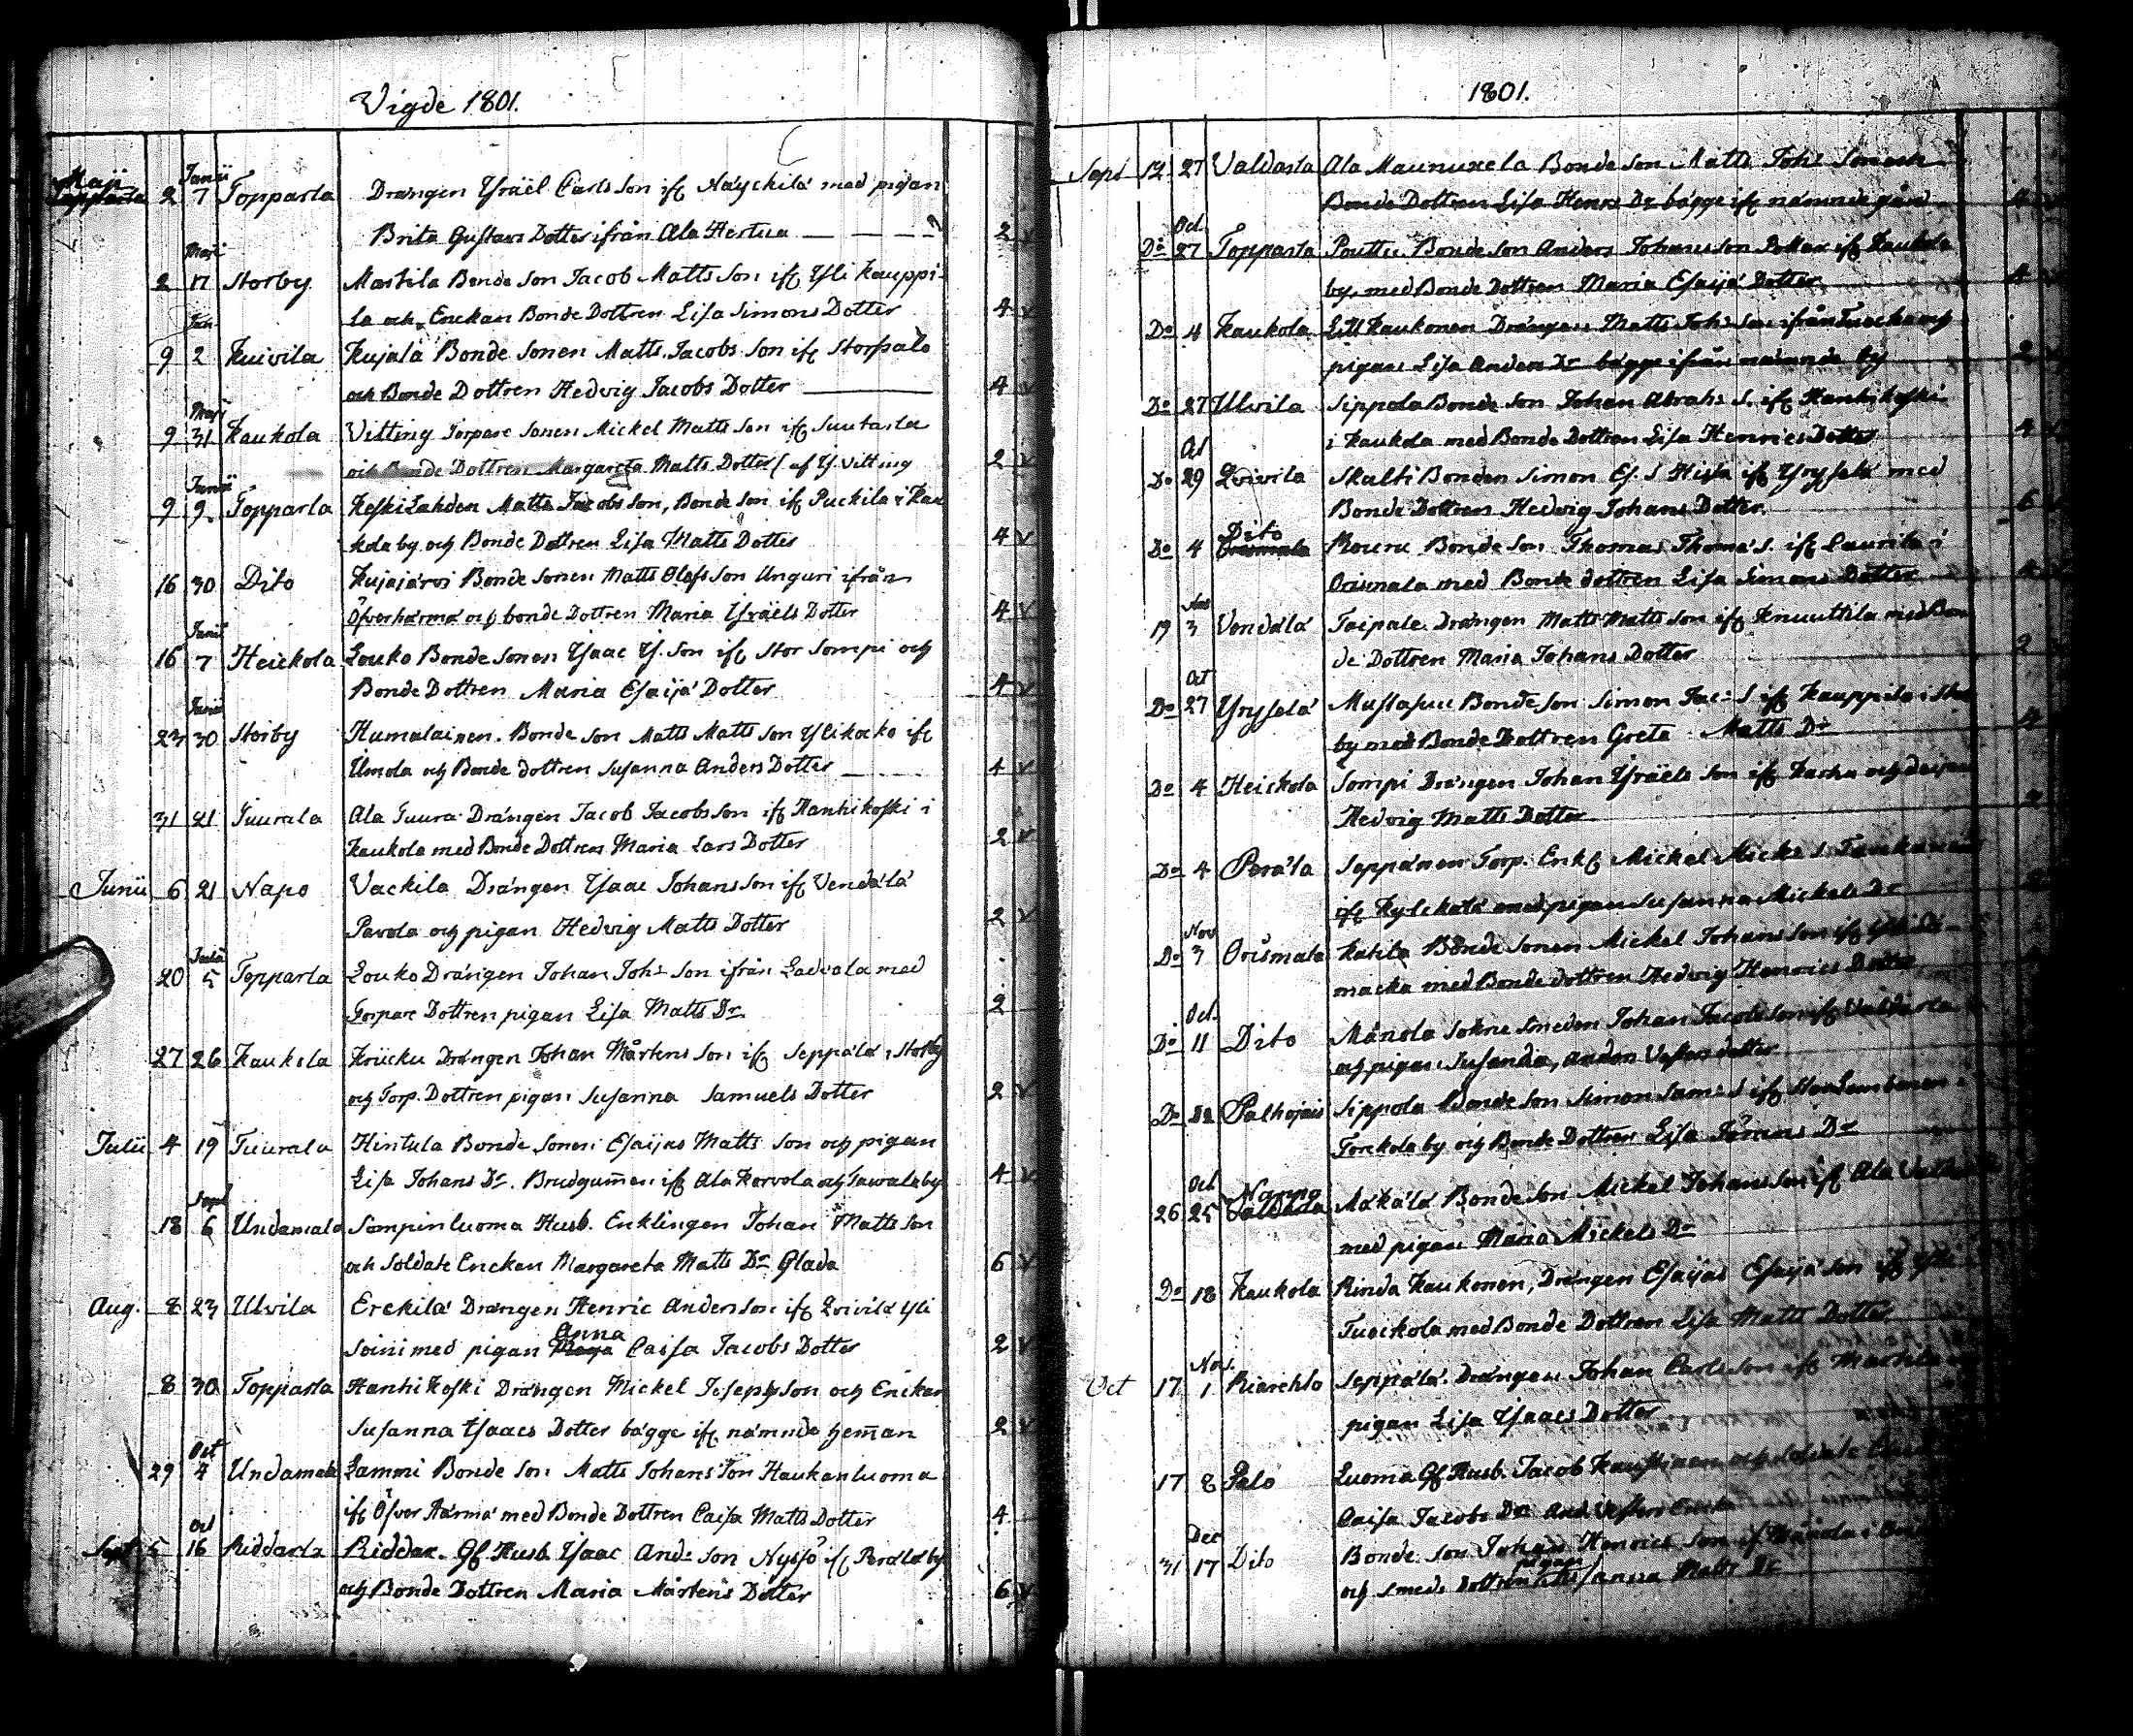 Vigde 1801.
Maji 2 Junii 7 Topparla Drängen Ysräel Carls Son if Näyckilä med pigan
Brita Gustavs Dotter ifrån Ala Hertua 2 v
2 Maji 17 Storby Mattila Bonde Son Jacob Matts Son if Yli Kauppi-
la och Enckan Bonde Dottren Lisa Simons Dotter 4 v
9 2 Kuivila Kujala Bonde Sonen Matts Jacobs Son if Storpalo
och Bonde Dottren Hedvig Jacobs Dotter 4 v
9 Maji 31 Kaukola Vitting Torpare Sonen Mickel Matts Son if Suutarla
och Bonde Dottren Margareta Matts Dotter / af Y. Vitting 2 v
9 Junii 9 Topparla KeskiLahden Matts Jacobs Son, Bonde Son if Puckila i Kau
kola by och Bonde Dottren Lisa Matts Dotter 4 v
16 30 Dito Kujajärvi Bonde Sonen Matts Olofs Son Unguri ifrån
Öfverhärmä och bonde Dottren Maria Ysräels Dotter 4 v
16 Junii 7 Heickola Louko Bonde Sonen Ysaac Y. Son if Stor Sompi och
Bonde Dottren Maria Esaijä Dotter 4 v
23 Junii 30 Storby Humalainen Bonde Son Matts Matts Son Ylikocko if
Ilmola och Bonde dottren Susanna Anders Dotter 4 v
31 21 Tuurala Ala Tuura Drängen Jacob Jacobs Son if Hanhikoski i
Kaukola med Bonde Dottren Maria Lars Dotter 2 v
Junii 6 21 Napo Vackila Drängen Ysaac Johans Son if Vendälä
Pavola och pigan Hedvig Matts Dotter 2 v
20 5 Topparla Louko Drängen Johan Johs Son ifrån Ladvala med
Torpare Dottren pigan Lisa Matts Dr 2
27 26 Kaukola Krücku Drängen Johan Mårtens Son if Seppälä i Storby
och Torp. Dottren pigan Susanna Samuels Dotter 2 v
Julii 4 19 Tuurala Hintula Bonde Sonen Esaijas Matts Son och pigan
Lisa Johans Dr. Brudgummen if Ala Kervola och Tavvola by 4 v
18 Sept 6 Undamala Sompinluoma Husb. Encklingen Johan Matts Son
och Soldate Enckan Margareta Matts Dr Glada 6 v
Aug. 8 23 Ulvila Erckilä Drängen Henric Anders Son if Qvivila Yli
Soini med pigan Anna Caisa Jacobs Dotter 2 v
8 30 Topparla Hanhikoski Drängen Mickel Josephs Son och Enckan
Susanna Ysaacs Dotter bägge if nämnde hemman 2 v
29 Oct 4 Undamala Lammi Bonde Son Matts Johans Son Haukanluoma
if Öfver Härmä med Bonde Dottren Caisa Matts Dotter 4
Sept 5 Oct 16 Riddarla Riddar Gf. Husb. Ysaac Ands Son Nyssö if Perälä by
och Bonde Dottren Maria Mårtens Dotter 6 v
1801.
Sept 12 27 Valdarla Ala Maunuxela Bonde Son Matts Johs Son och
Bonde Dottren Lisa Henrs Dr bägge if nämnde gård 4
Do Oct. 27 Topparla Pouttu Bonde Son Anders Johans Son if Kaukola
by, med Bonde Dottren Maria Esaijä Dotter 4
Do 4 Kaukola Lill Kaukonen Drängen Matts Johs Son ifrån och
pigan Lisa Anders Dr bägge ifrån nämnde by 2
Do 27 Ulvila Sippola Bonde Son Johan Abrahs S. if Hanhikoski
i Kaukola med Bonde Dottren Lisa Henrics Dotter 4
Do Oct 29 Qvivila Skalti Bonden Simon Es. S if Yrysselä med
Bonde Dottren Hedvig Johans Dotter. 6
Do 4 Dito Rouru Bonde Son Thomas Thomä S. if Laurila i
Orismala med Bonde dottren Lisa Simons Dotter 4
19 3 Vendälä Taipale Drängen Matts Matts Son if Knuuttila med Bon
de Dottren Maria Johans Dotter 2
Do Oct 27 Yrysselä Mustasuu Bonde Son Simon Jac: S if Kauppila i Stor
by med Bonde Dottren Greta Matts Dr 4
Do 4 Heickola Sompi Drängen Johan Ysräels Son if Karhu och
Hedvig Matts Dotter
Do 4 Perälä Seppänen Torp. Enkl Mickel Mickels S.
if Kylckälä med pigan Susanna Mickels Dr
Do Nov 3 Orismala Katila Bonde Sonen Mickel Johans Son if
macka med Bonde dottren Hedvig Henrics Dotter
Do Oct. 11 Dito Månola Sockne Smeden Johan Jacobs Son if Valdarla
och pigan Susanna, Anders dotter
Do Palhojais Sippola Bonde Son Simon Sam: S if
Torckola by och Bonde Dottren Lisa Dr
26 Oct 25 Nappo Mäkälä Bonde Son Mickel Johans Son if Ala
med pigan Maria Mickels Dr
Do 18 Kaukola Rinda Kaukonen, Drängen Esaijas Esaijä Son if Yli
Tuockola med Bonde Dottren Lisa Matts Dotter
Oct 17 Nov. 1 Kiarehlo Seppälä Drängen Johan Carls Son if
pigan Lisa Ysaacs Dotter
17 8 Palo Luoma Gf. Husb. Jacob och Soldate
Caisa Jacobs Dr
31 Dec 17 Dito Bonde Son Johan Henrics Son if i
och Smeds Dottren pigan Matts Dr